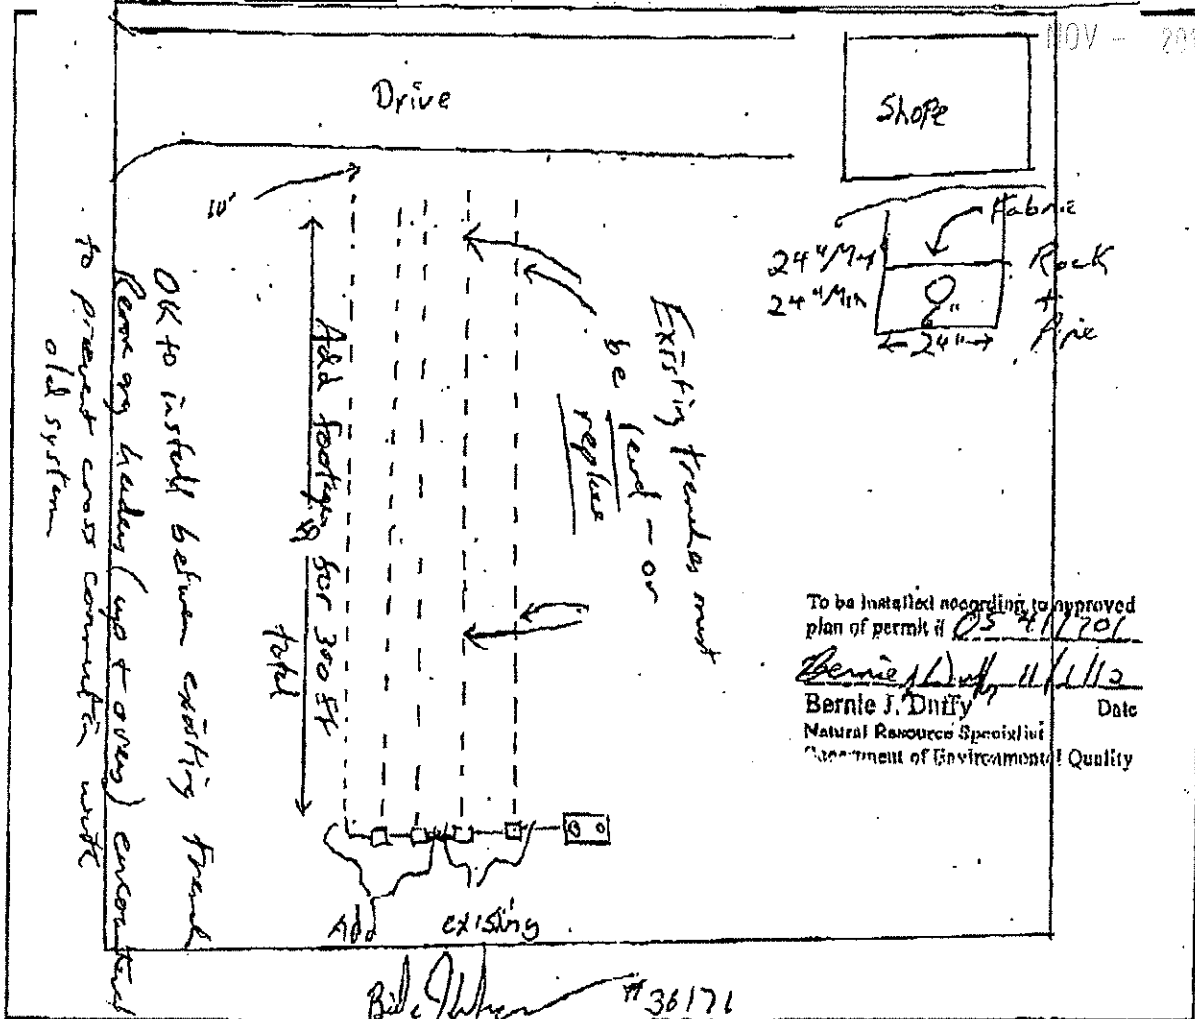 NOV - 201
Drive
Shope
10'
Fabric
24"
Rock
24" Min
+
Pipe
24"
Existing trenches must
be
- or
replace
Add footage for 300 ft
total
OK to install between existing trench
any headers (ups + overs) encountered
to prevent cross connection with
old system
To be installed according to approved
plan of permit #
11/1/12
Bernie J. Duffy
Date
Natural Resource Specialist
Department of Environmental Quality
Add
existing
#36171